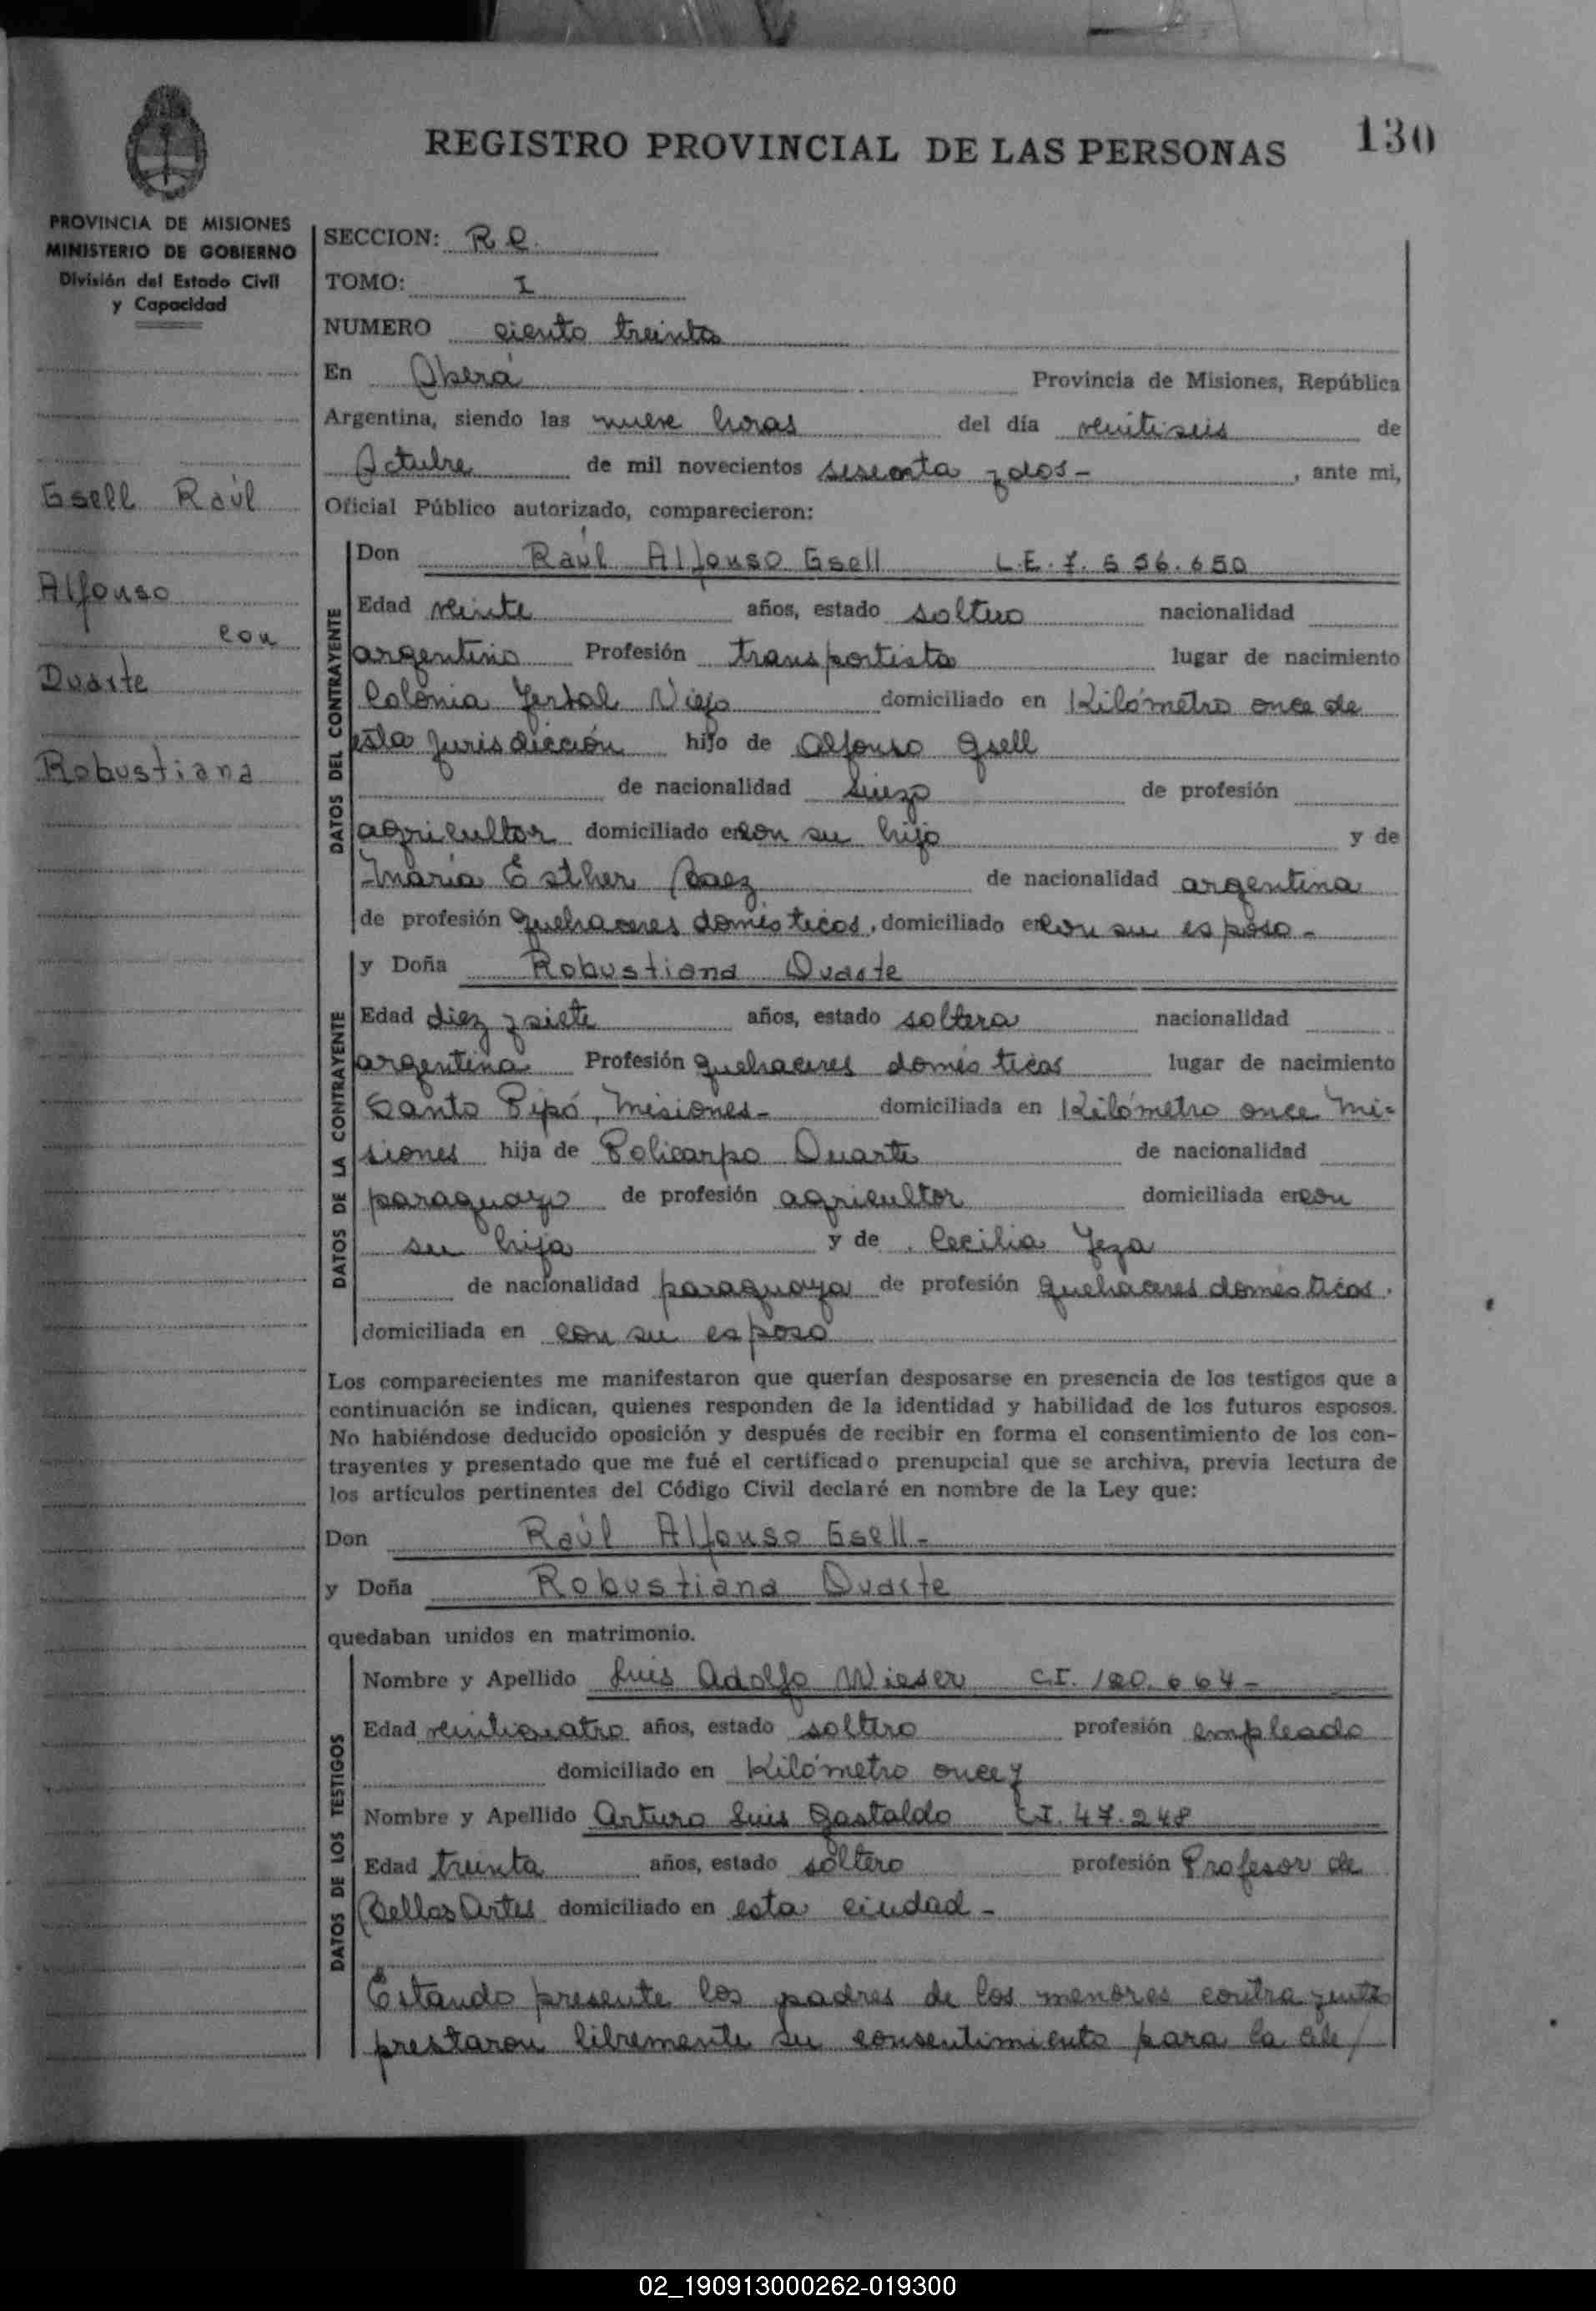 REGISTRO PROVINCIAL DE LAS PERSONAS 130
PROVINCIA DE MISIONES
MINISTERIO DE GOBIERNO
División del Estado Civil
y Capacidad
Gsell Raúl
Alfonso
con
Duarte
Robustiana
SECCION: R.C.
TOMO: I
NUMERO ciento treinta
En Oberá Provincia de Misiones, República
Argentina, siendo las nueve horas del día veintiseis de
Octubre de mil novecientos sesenta y dos- , ante mi,
Oficial Público autorizado, comparecieron:
DATOS DEL CONTRAYENTE
Don Raúl Alfonso Gsell L.E. 7.556.650
Edad veinte años, estado soltero nacionalidad
argentino Profesión transportista lugar de nacimiento
Colonia Yerbal Viejo domiciliado en Kilómetro once de
esta Jurisdicción hijo de Alfonso Gsell
de nacionalidad Suizo de profesión
agricultor domiciliado en con su hijo y de
María Esther Baez de nacionalidad argentina
de profesión quehaceres domésticos, domiciliado en con su esposo-
DATOS DE LA CONTRAYENTE
y Doña Robustiana Duarte
Edad diez y siete años, estado soltera nacionalidad
argentina Profesión quehaceres domésticos lugar de nacimiento
Santo Pipó, Misiones- domiciliada en Kilómetro once Mi-
siones hija de Policarpo Duarte de nacionalidad
paraguayo de profesión agricultor domiciliada en con
su hija y de Cecilia
de nacionalidad paraguaya de profesión quehaceres domésticos.
domiciliada en con su esposo
Los comparecientes me manifestaron que querían desposarse en presencia de los testigos que a
continuación se indican, quienes responden de la identidad y habilidad de los futuros esposos.
No habiéndose deducido oposición y después de recibir en forma el consentimiento de los con-
trayentes y presentado que me fué el certificado prenupcial que se archiva, previa lectura de
los artículos pertinentes del Código Civil declaré en nombre de la Ley que:
Don Raúl Alfonso Gsell-
y Doña Robustiana Duarte
quedaban unidos en matrimonio.
DATOS DE LOS TESTIGOS
Nombre y Apellido Luis Adolfo Wieser C.I. 120.664-
Edad veinticuatro años, estado soltero profesión empleado
domiciliado en Kilómetro once y
Nombre y Apellido Arturo Luis Gastaldo C.I. 47.248
Edad treinta años, estado soltero profesión Profesor de
Bellas Artes domiciliado en esta ciudad-
Estando presente los padres de los menores contrayentes
prestaron libremente su consentimiento para la cele/
02_190913000262-019300